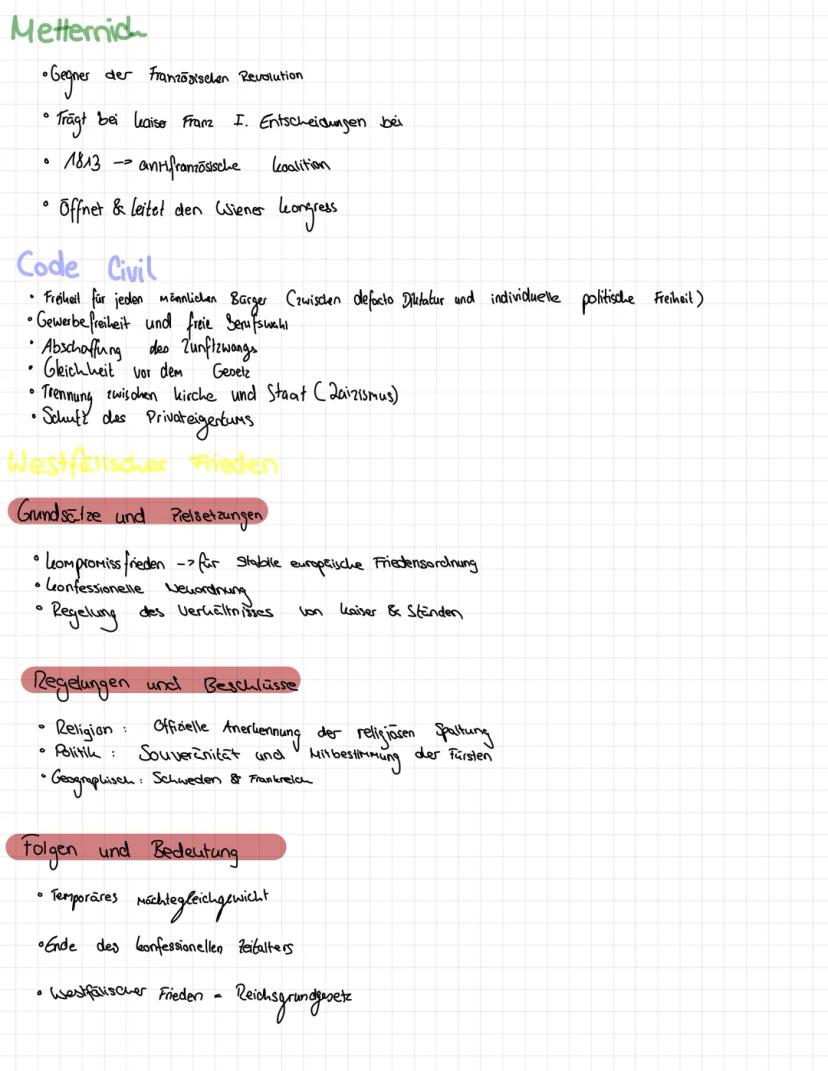 Metternich
• Gegner der Französischen Revolution
• Trägt bei Kaiser Franz I. Entscheidungen bei
• 1813 -> antifranzösische Koalition
• Öffnet & leitet den Wiener Kongress
Code Civil
• Freiheit für jeden männlichen Bürger (zwischen defacto Diktatur und individuelle politische Freiheit)
• Gewerbefreiheit und freie Berufswahl
• Abschaffung des Zunftzwangs
• Gleichheit vor dem Gesetz
• Trennung zwischen Kirche und Staat (Laizismus)
• Schutz des Privateigentums
Westfälischer Frieden
Grundsätze und Zielsetzungen
• Kompromissfrieden -> für stabile europäische Friedensordnung
• Konfessionelle Neuordnung
• Regelung des Verhältnisses von Kaiser & Ständen
Regelungen und Beschlüsse
• Religion : Offizielle Anerkennung der religiösen Spaltung
• Politik : Souveränität und Mitbestimmung der Fürsten
• Geographisch : Schweden & Frankreich
Folgen und Bedeutung
• Temporäres Mächtegleichgewicht
• Ende des konfessionellen Zeitalters
• Westfälischer Frieden = Reichsgrundgesetz